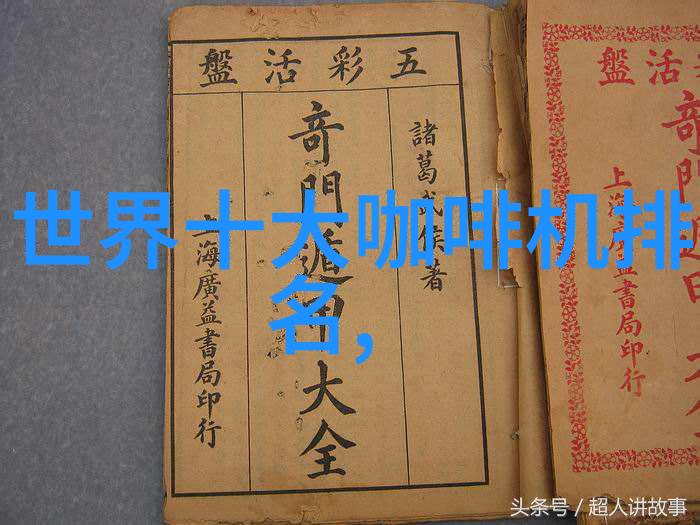 五彩活盤
諸葛武侯著
竒門遁甲大全
上海廣益書局印行
世界十大咖啡机排
名,
活盤
竒門遁
上海廣益書局印行
头条号 / 超人讲故事